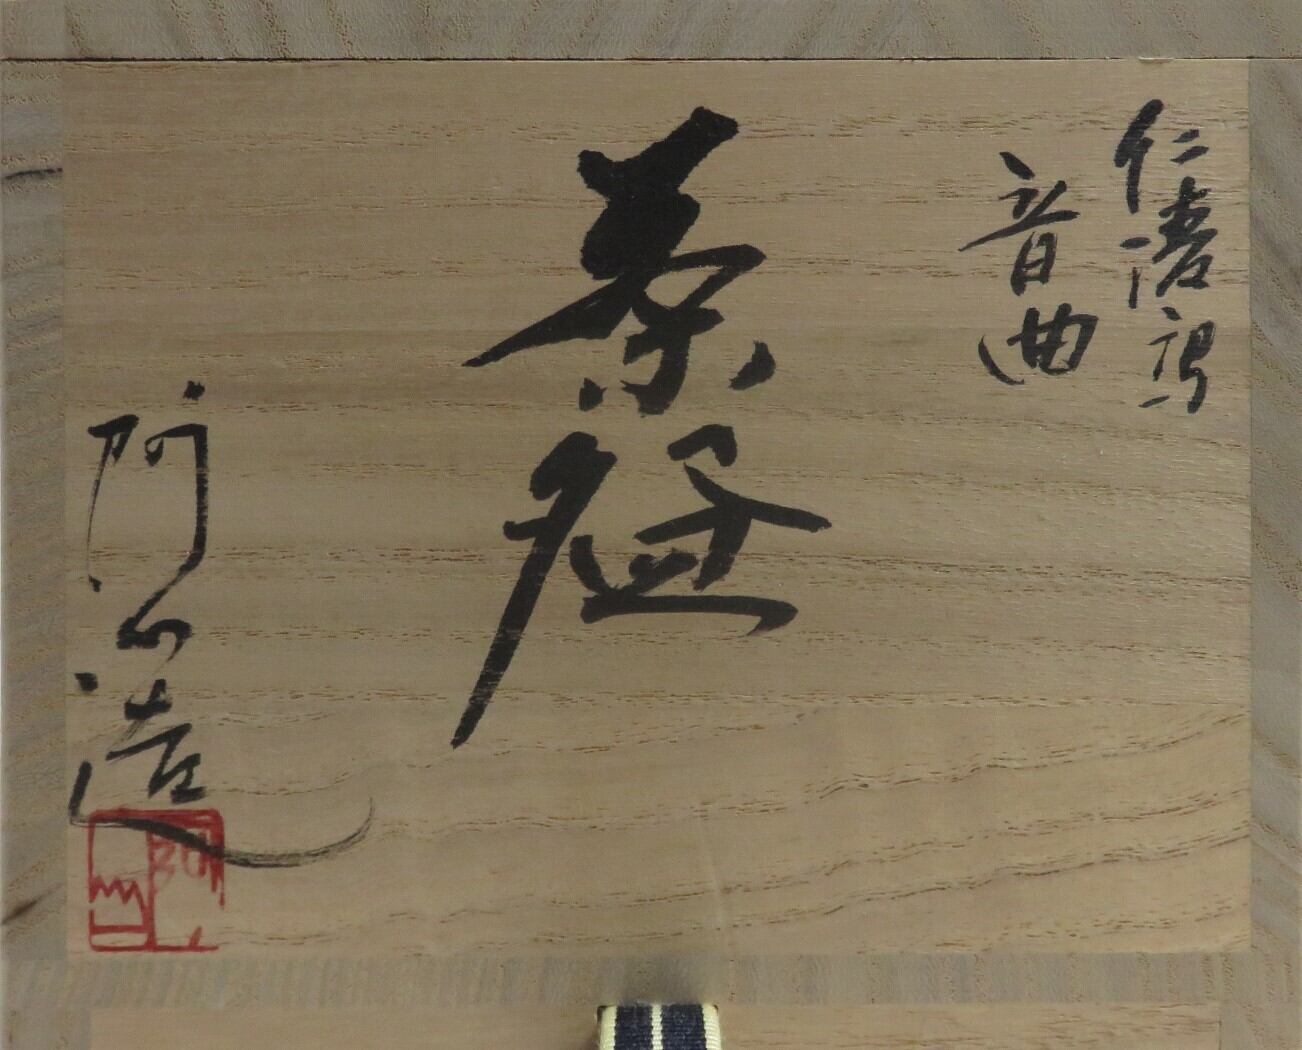 仁清写
音曲
茶盌
阿山造